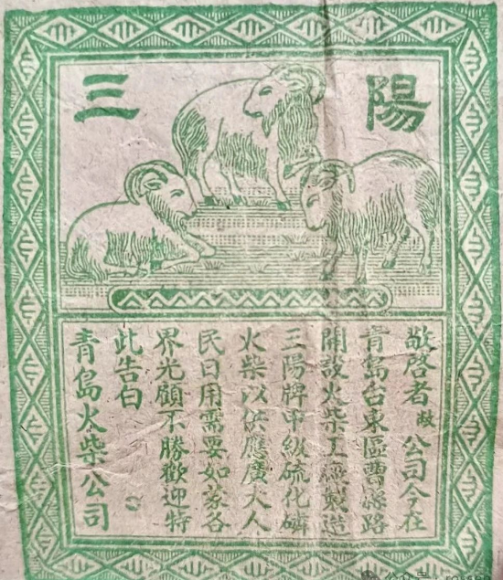 三陽
敬啓者敝公司今在
青島台東區曹縣路
開設火柴工廠製造
三陽牌甲級硫化磷
火柴以供應廣大人
民日用需要如蒙各
界光顧不勝歡迎特
此告白
青島火柴公司